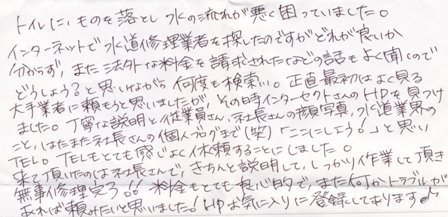 トイレに、ものを落とし水の流れが悪く困っていました。
インターネットで水道修理業者を探したのですがどれが良いか
分からず、また法外な料金を請求されたなどの話もよく聞くので
どうしよう？と思いながら何度も検索い。正直最初はよく見る
大手業者に頼もうと思いましたが、その時インターセクトさんのHPを見つけ
ました。丁寧な説明と従業員さん、社長さんの顔写真、水道業界の
こと、はたまた社長さんの個人ブログまで(笑)「ここにしよう！」と思い
TEL。TELもとても感じよく依頼することにしました。
来て頂いたのは社長さんで、きちんと説明して、しっかり作業して頂き
無事修理完了！！料金もとても良心的で、また何かトラブルが
あれば頼みたいと思いました！HPお気に入りに登録してあります♪